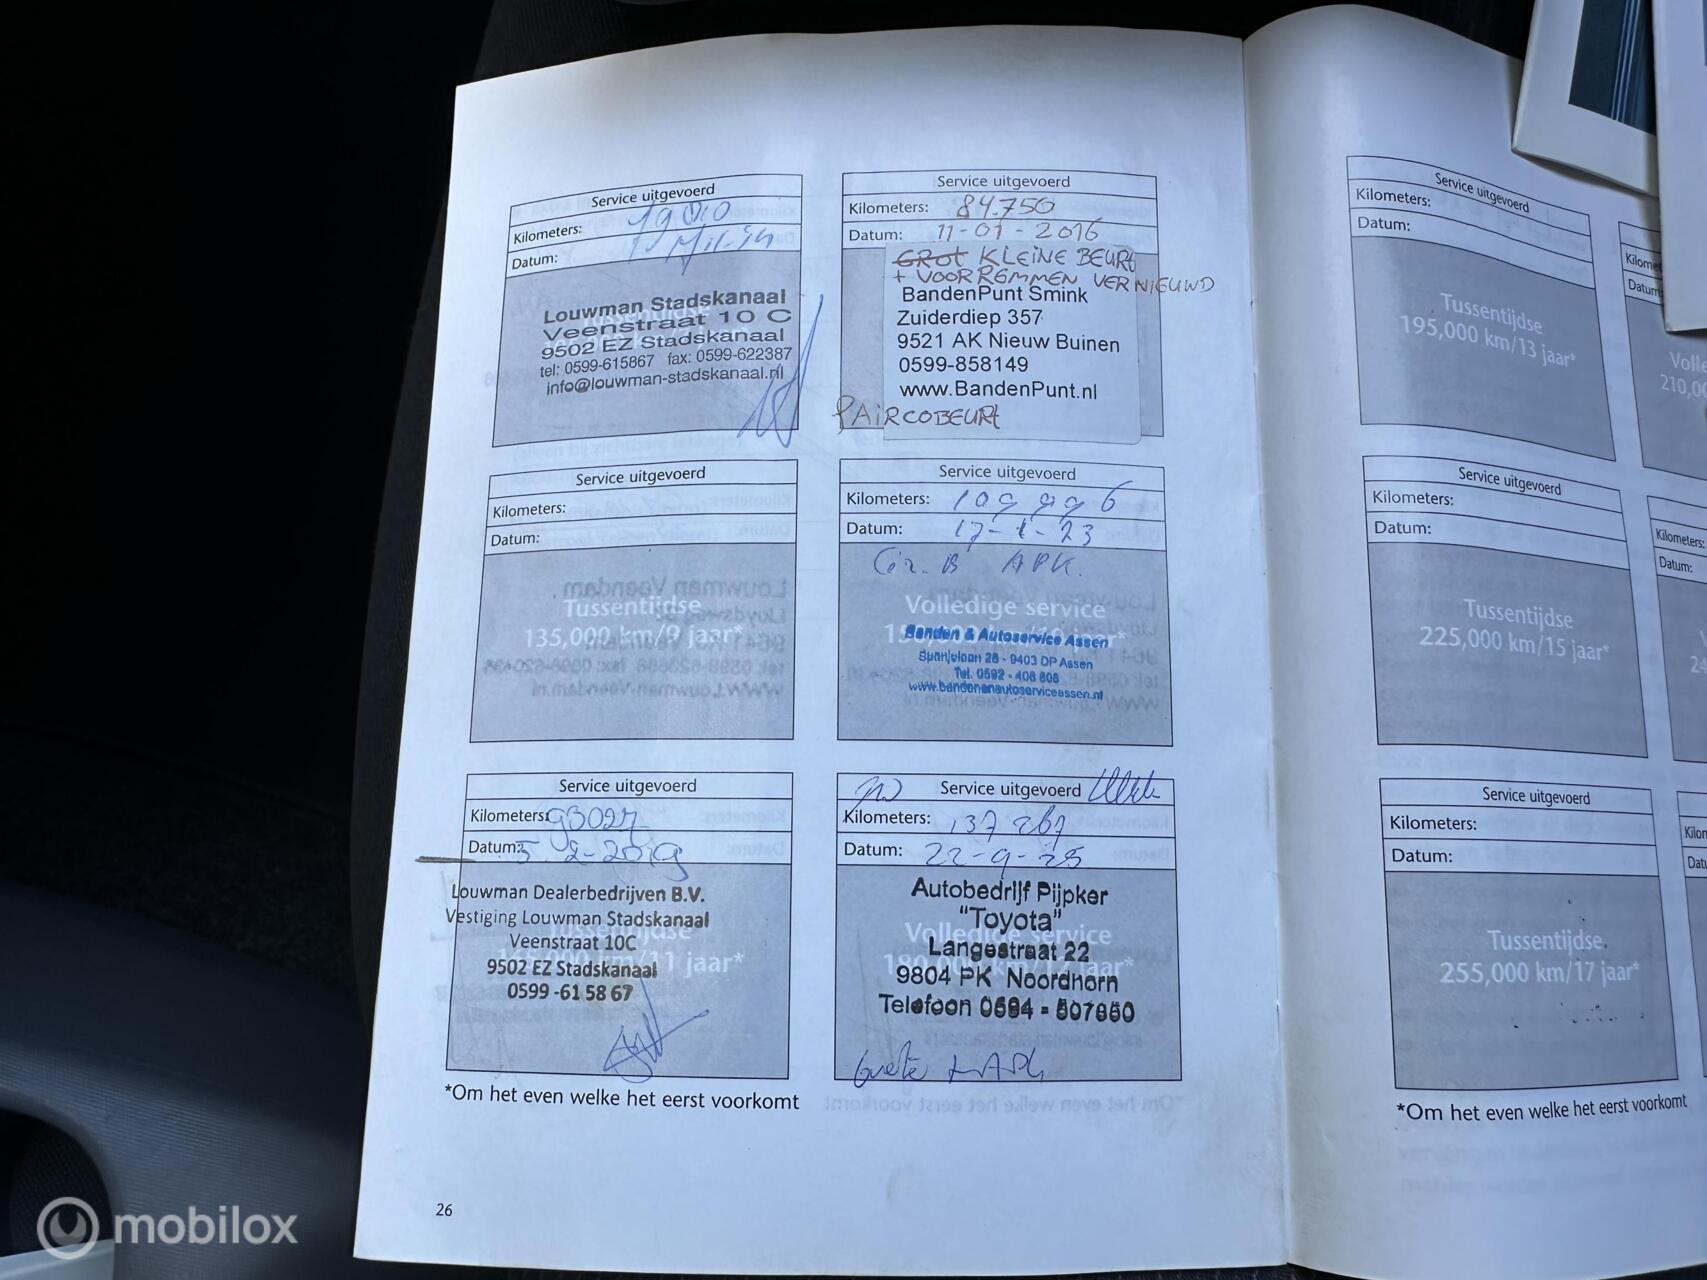 Service uitgevoerd
Kilometers:
Datum:
Louwman Stadskanaal
Veenstraat 10 C
9502 EZ Stadskanaal
tel: 0599-615867 fax: 0599-622387
info@louwman-stadskanaal.nl
Service uitgevoerd
Kilometers: 84.750
Datum: 11-01-2016
GROT KLEINE BEURT
+ VOORREMMEN VERNIEUWD
BandenPunt Smink
Zuiderdiep 357
9521 AK Nieuw Buinen
0599-858149
www.BandenPunt.nl
AIRCOBEURT
Service uitgevoerd
Kilometers:
Datum:
Tussentijdse
135,000 km/9 jaar*
Service uitgevoerd
Kilometers: 109996
Datum: 17-1-23
Gr. B APK.
Volledige service
Banden & Autoservice Assen
9403 DP Assen
Tel. 0592 - 408 808
www.bandenenautoserviceassen.nl
Service uitgevoerd
Kilometers: 93027
Datum: 5 2-2019
Louwman Dealerbedrijven B.V.
Vestiging Louwman Stadskanaal
Veenstraat 10C
9502 EZ Stadskanaal
0599 -61 58 67
km/11 jaar*
Service uitgevoerd
Kilometers: 137267
Datum: 22-9-25
Autobedrijf Pijpker
"Toyota"
Volledige service
Langestraat 22
9804 PK Noordhorn
Telefoon 0594 - 507850
*Om het even welke het eerst voorkomt
26
Service uitgevoerd
Kilometers:
Datum:
Tussentijdse
195,000 km/13 jaar*
Service uitgevoerd
Kilometers:
Datum:
Tussentijdse
225,000 km/15 jaar*
Service uitgevoerd
Kilometers:
Datum:
Tussentijdse
255,000 km/17 jaar*
*Om het even welke het eerst voorkomt
Kilometers:
Datum:
mobilox